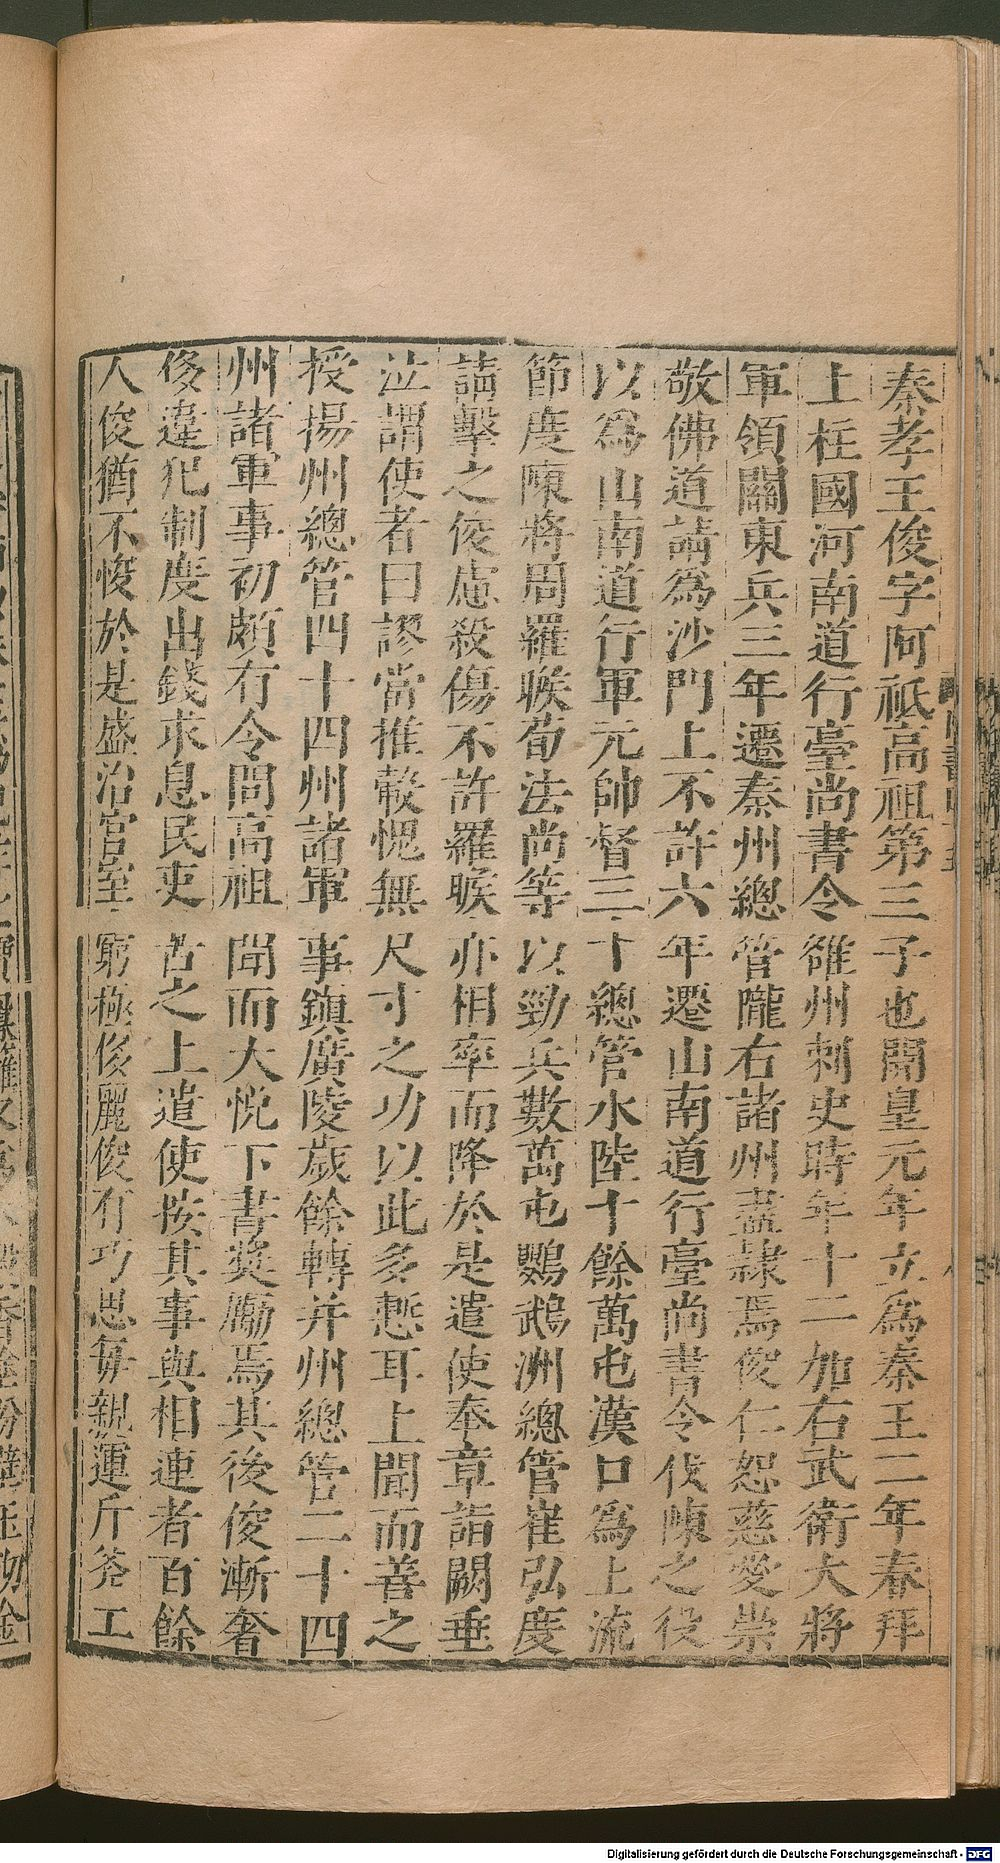 秦孝王俊字阿祗高祖第三子也開皇元年立爲秦王二年春拜
上柱國河南道行臺尚書令雒州刺史時年十二加右武衛大將
軍領關東兵三年遷秦州總管隴右諸州盡隷焉俊仁恕慈愛崇
敬佛道請爲沙門上不許六年遷山南道行臺尚書令伐陳之役
以爲山南道行軍元帥督三十總管水陸十餘萬屯漢口爲上流
節度陳將周羅睺荀法尚等以勁兵數萬屯鸚鵡洲總管崔弘度
請擊之俊慮殺傷不許羅睺亦相率而降於是遣使奉章詣闕垂
泣謂使者曰謬當推轂愧無尺寸之功以此多慙耳上聞而善之
授揚州總管四十四州諸軍事鎮廣陵歲餘轉并州總管二十四
州諸軍事初頗有令問高祖聞而大悅下書奬勵焉其後俊漸奢
侈違犯制度出錢求息民吏苦之上遣使按其事與相連者百餘
人俊猶不悛於是盛治宫室窮極侈麗俊有巧思每親運斤斧工
Digitalisierung gefördert durch die Deutsche Forschungsgemeinschaft - DFG